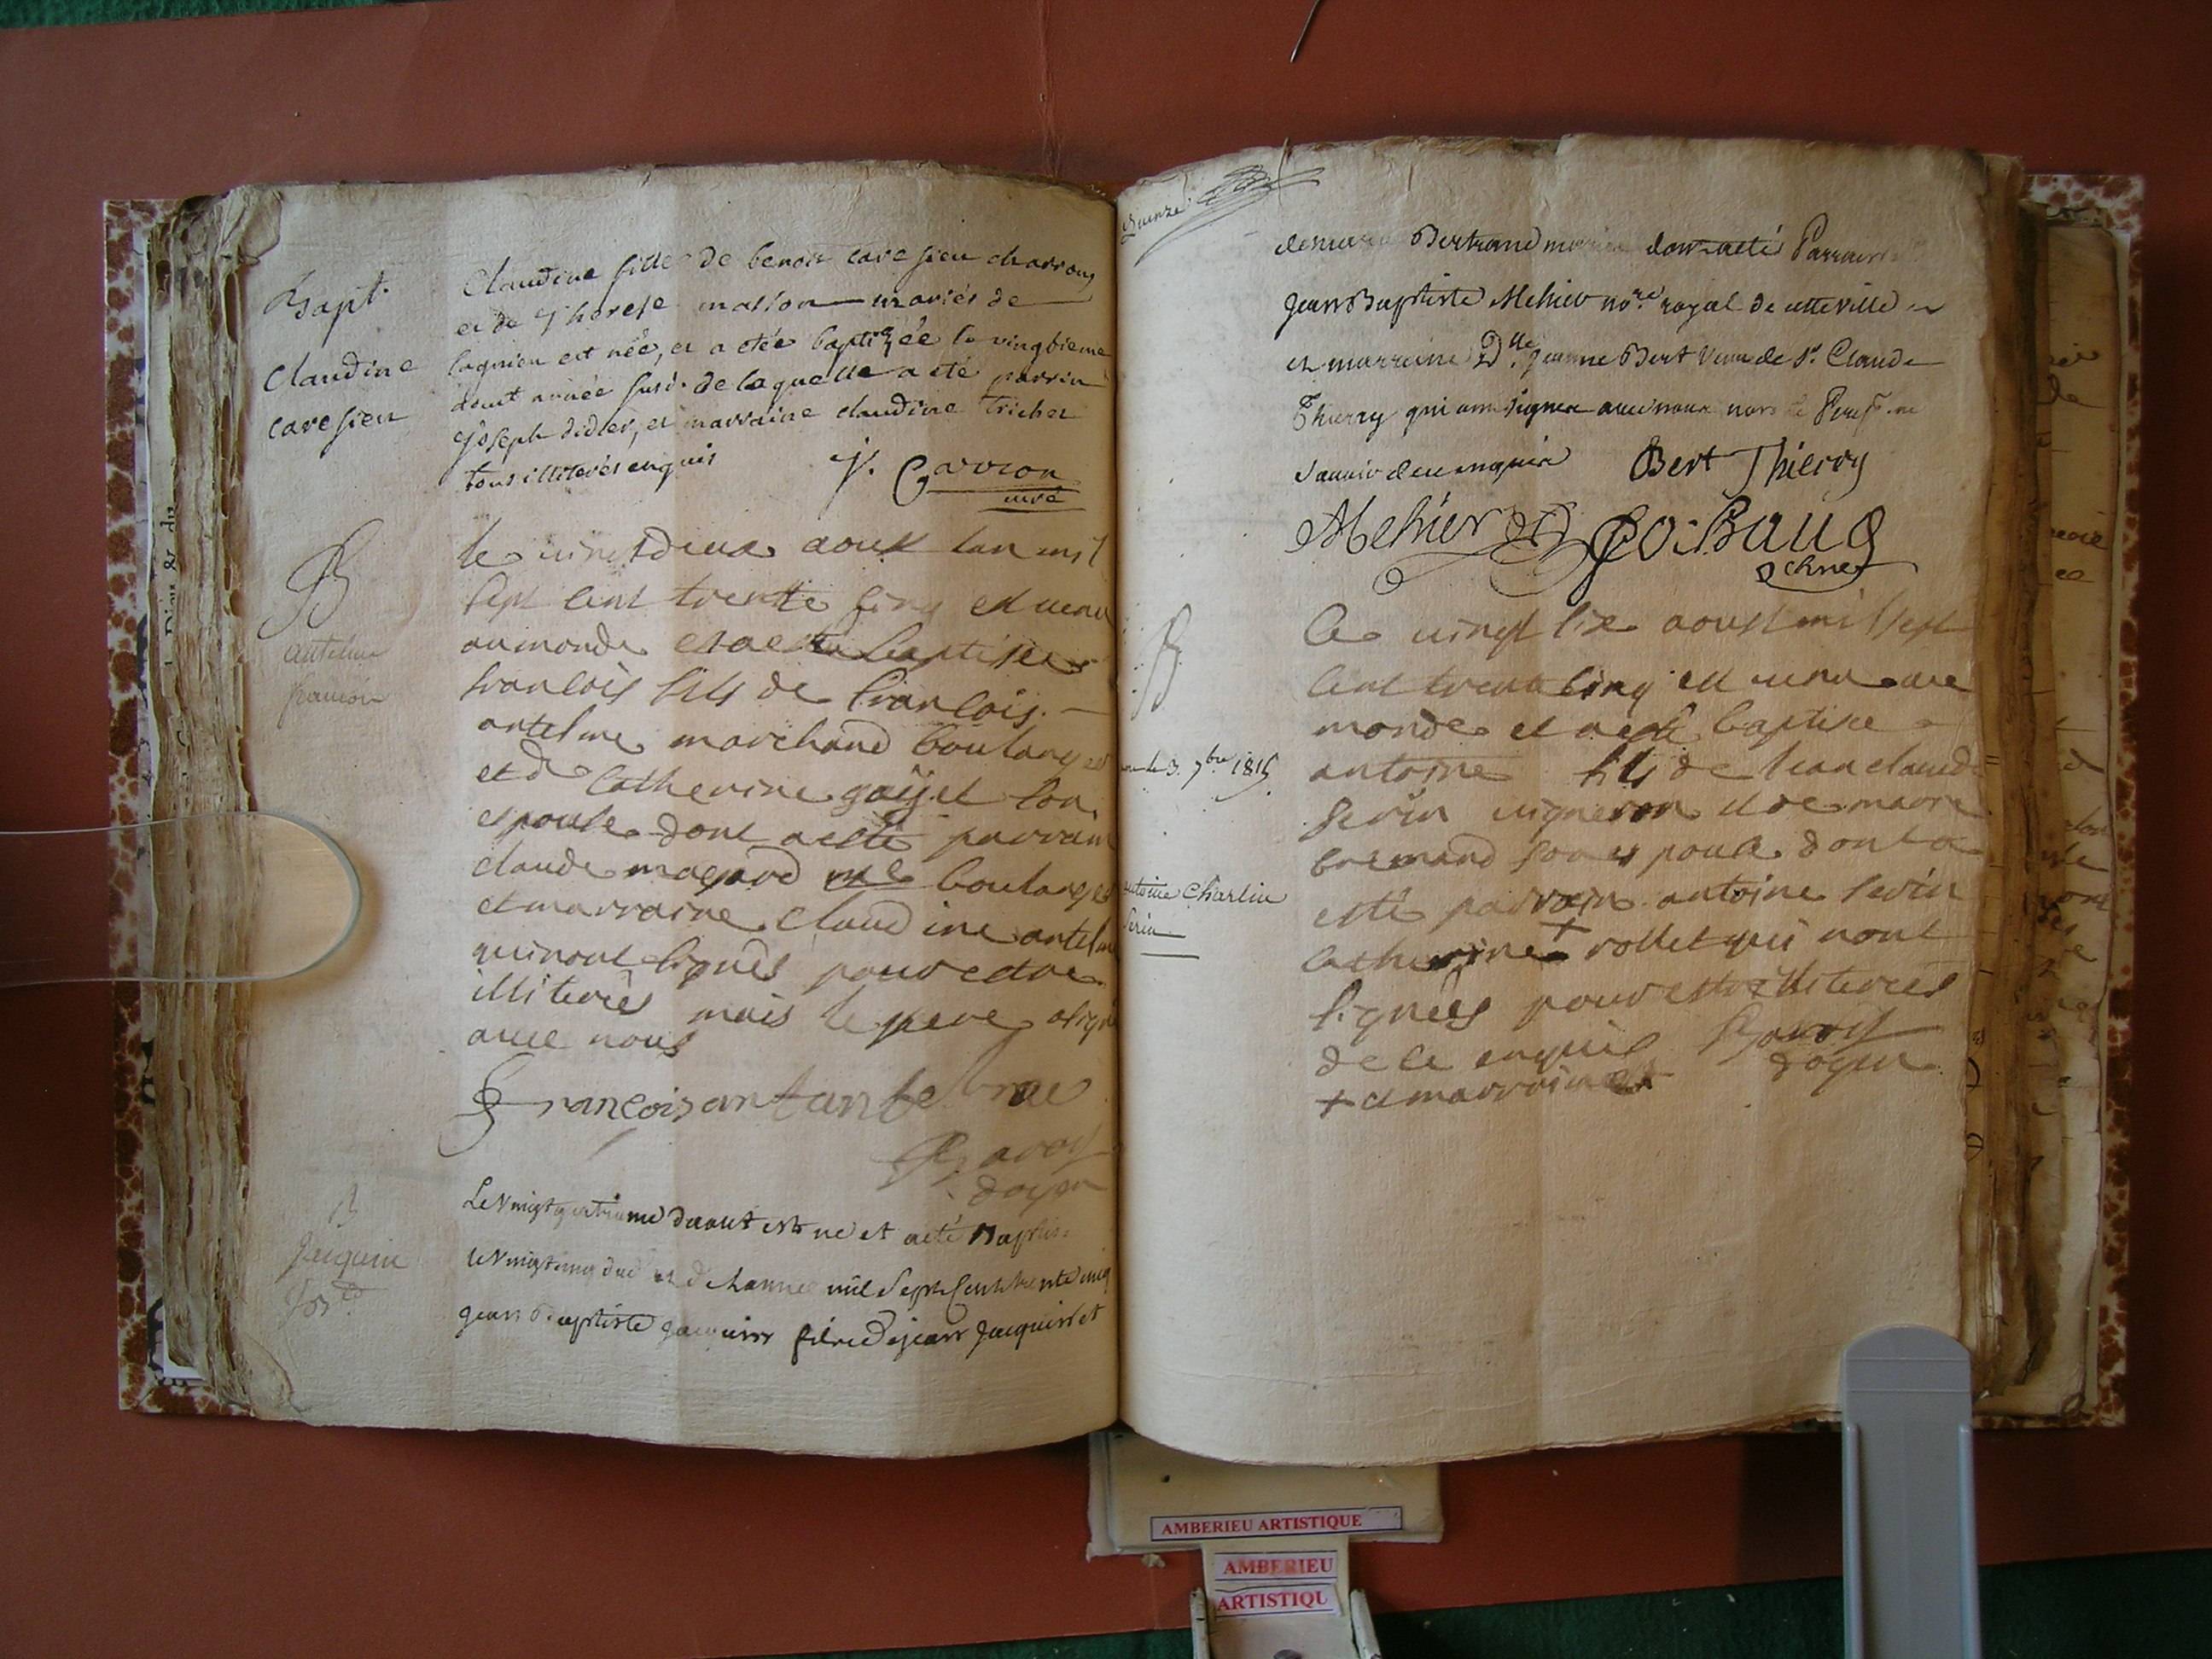 Bapt.
Claudine
Caresien
Claudine fille de benoit caresieu charron
et de Therese masson mariés de
lagnieu est née, et a etée baptizée le vingtieme
aout année susd. de laquelle a eté parrin
Joseph didier, et marraine claudine trichet
tous illiterés enquis
J. Garron
curé
B
antelme
francois
le vingt deux aoust lan mil
sept cent trentte sinq est venu
au monde et a esté baptisée
francois fils de francois
antelme marchand boulanger
et de Catherine son
espouse dont a esté parrain
claude boulanger
et marraine claudine antelme
qui nont signés pour estre
illiterés mais le pere a signé
avec nous
François
doyen
B
Jacquin
Le Vingt quatrieme daout est né et a eté Baptisé
le Vingt cinq dud et de lannée mil Sept Cent trente cinq
jean Baptiste Jacquin fils de jean Jacquin et
Quinze
Bertrand dont a eté Parrain
Jean Baptiste Mehier no.re royal de cette ville
et marreine D.lle jeanne Bert Veuve de Sr. Claude
Thierry qui ont signer avec nous non le
de ce enquis
Bert Thierry
Mehier
B
Le vingt six aoust mil sept
cent trente cinq est venu au
monde et a esté baptise
antoine fils de Jean claude
serin vigneron et de marie
son espouse dont a
esté parrain antoine serin
+
catherine rollet qui nont
signées pour estre illiterées
de ce enquis
doyen
+ et marraine
le 3. 7bre 1815
antoine Charlin
Serin
AMBERIEU ARTISTIQUE
AMBERIEU
ARTISTIQU